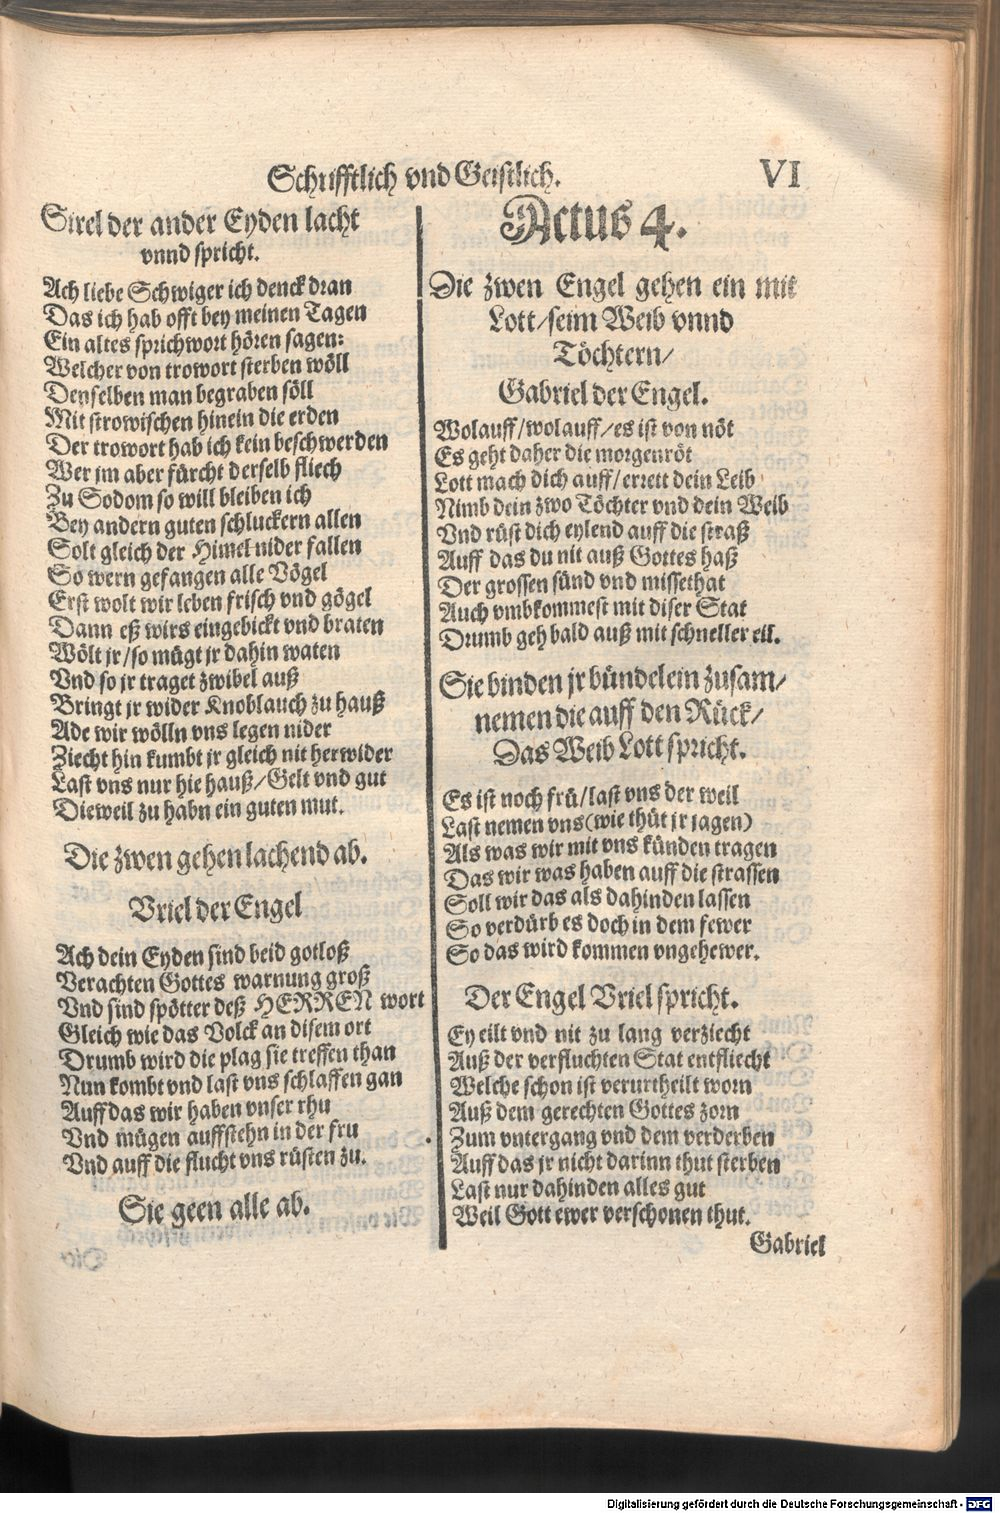 Schrifftlich vnd Geistlich.
VI
Sirel der ander Eyden lacht
vnnd spricht.
Ach liebe Schwiger ich denck dran
Das ich hab offt bey meinen Tagen
Ein altes sprichwort hören sagen:
Welcher von trowort sterben wöll
Denselben man begraben söll
Mit strowischen hinein die erden
Der trowort hab ich kein beschwerden
Wer jm aber fürcht derselb fliech
Zu Sodom so will bleiben ich
Bey andern guten schluckern allen
Solt gleich der Himel nider fallen
So wern gefangen alle Vögel
Erst wolt wir leben frisch vnd gögel
Dann eß wirs eingebickt vnd braten
Wölt jr/so mügt jr dahin waten
Vnd so jr traget zwibel auß
Bringt jr wider Knoblauch zu hauß
Ade wir wölln vns legen nider
Ziecht hin kumbt jr gleich nit herwider
Last vns nur hie hauß/Gelt vnd gut
Dieweil zu habn ein guten mut.
Die zwen gehen lachend ab.
Vriel der Engel
Ach dein Eyden sind beid gotloß
Verachten Gottes warnung groß
Vnd sind spötter deß HERREN wort
Gleich wie das Volck an disem ort
Drumb wird die plag sie treffen than
Nun kombt vnd last vns schlaffen gan
Auff das wir haben vnser rhu
Vnd mügen auffstehn in der fru
Vnd auff die flucht vns rüsten zu.
Sie geen alle ab.
Actus 4.
Die zwen Engel gehen ein mit
Lott/seim Weib vnnd
Töchtern/
Gabriel der Engel.
Wolauff/wolauff/es ist von nöt
Es geht daher die morgenröt
Lott mach dich auff/errett dein Leib
Nimb dein zwo Töchter vnd dein Weib
Vnd rüst dich eylend auff die straß
Auff das du nit auß Gottes haß
Der grossen sünd vnd missethat
Auch vmbkommest mit diser Stat
Drumb geh bald auß mit schneller eil.
Sie binden jr bündelein zusam/
nemen die auff den Rück/
Das Weib Lott spricht.
Es ist noch frü/last vns der weil
Last nemen vns(wie thüt jr jagen)
Als was wir mit vns künden tragen
Das wir was haben auff die strassen
Soll wir das als dahinden lassen
So verdürb es doch in dem fewer
So das wird kommen vngehewer.
Der Engel Vriel spricht.
Ey eilt vnd nit zu lang verziecht
Auß der verfluchten Stat entfliecht
Welche schon ist verurtheilt worn
Auß dem gerechten Gottes zorn
Zum vntergang vnd dem verderben
Auff das jr nicht darinn thut sterben
Last nur dahinden alles gut
Weil Gott ewer verschonen thut.
Gabriel
Digitalisierung gefördert durch die Deutsche Forschungsgemeinschaft - DFG